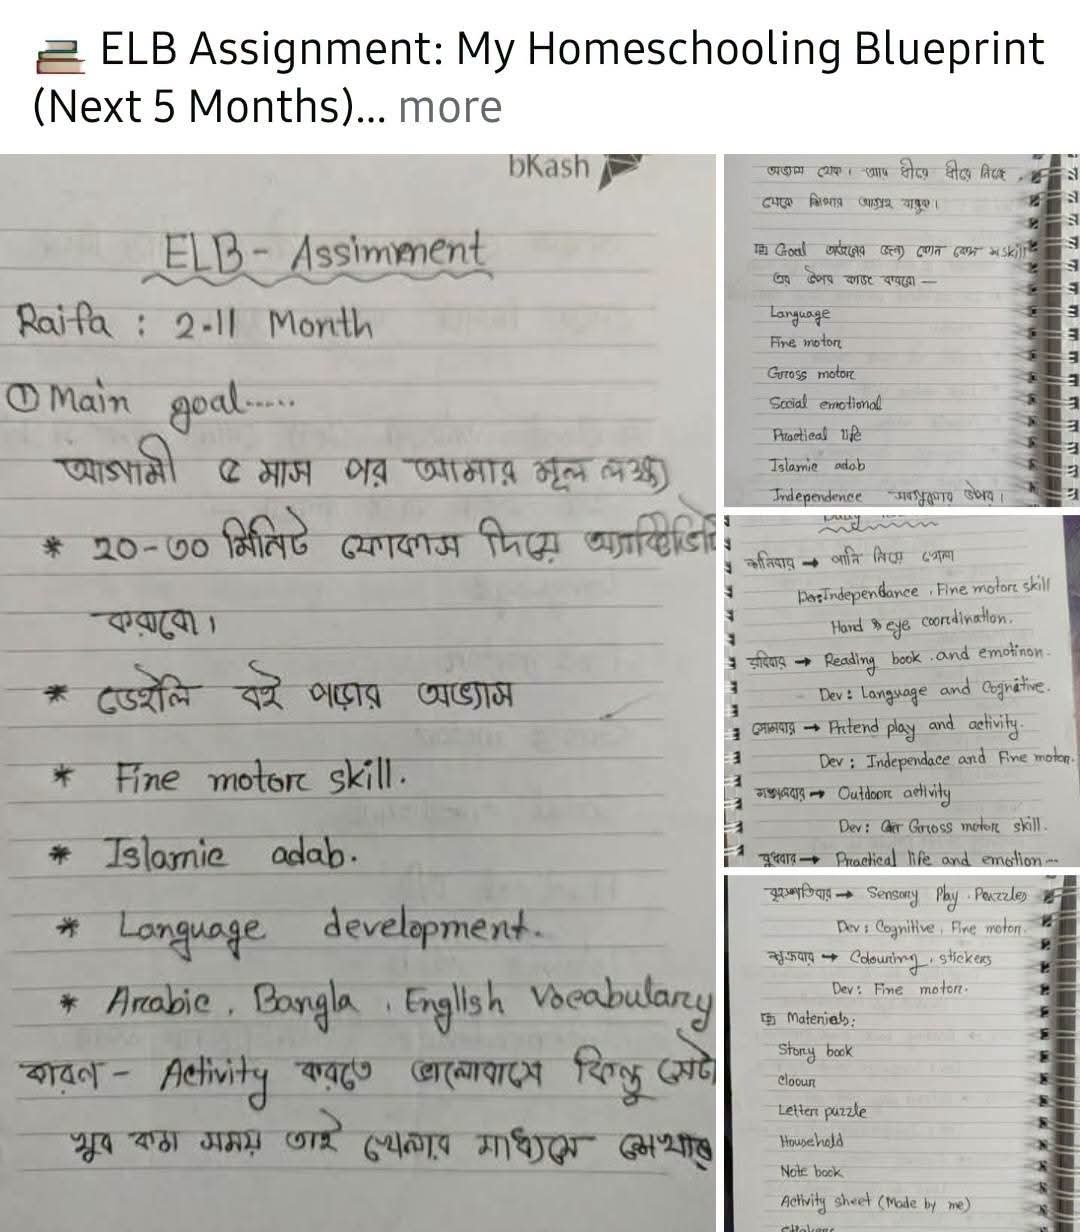 📚 ELB Assignment: My Homeschooling Blueprint
(Next 5 Months)... more
bKash
ELB - Assimment
Raifa : 2-11 Month
① Main goal.....
আগামী ৫ মাস পর আমার মূল লক্ষ্য
* ২০-৩০ মিনিট ফোকাস দিয়ে অ্যাক্টিভিটি
করাবো।
* ডেইলি বই পড়ার অভ্যাস
* Fine motore skill.
* Islamic adab.
* Language development.
* Arabic, Bangla, English Vocabulary
কারন - Activity করতে ভালোবাসে কিন্তু সেটা
খুব কম সময় তাই খেলার মাধ্যমে শেখার
অভ্যাস হোক। আর ধীরে ধীরে নিজে
থেকে শিখার আগ্রহ বাড়ুক।
Goal অর্জনের জন্য কোন কোন skill
এর উপর কাজ করবো —
Language
Fine motore
Gross motore
Social emotional
Practical life
Islamic adab
Independence সবগুলোর উপর।
শনিবার → পানি নিয়ে খেলা
Dev: Independance, Fine motore skill
Hand & eye coordination.
রবিবার → Reading book and emotinon.
Dev: Language and Cognative.
সোমবার → Pritend play and activity.
Dev: Independace and Fine motor.
মঙ্গলবার → Outdoor activity
Dev: Gross motore skill.
বুধবার → Practical life and emotion --
বৃহস্পতিবার → Sensory Play, Puzzles
Dev: Cognitive, Fine motor.
শুক্রবার → Colouring, stickers
Dev: Fine motor.
Materials:
Story book
Cloour
Letter puzzle
Household
Note book
Activity sheet (Made by me)